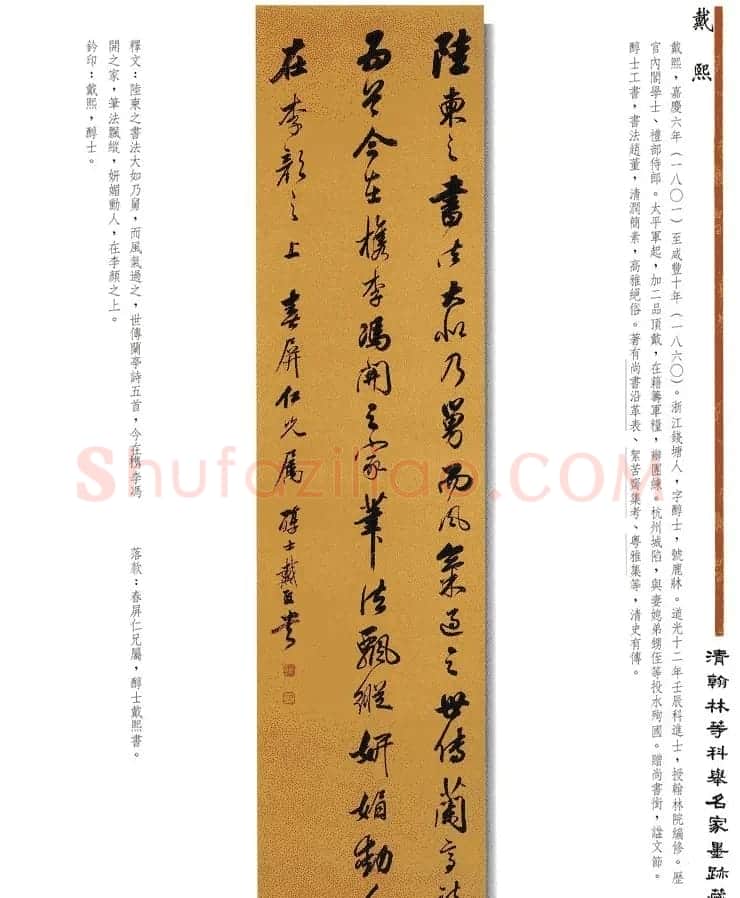 清翰林等科舉名家墨跡
戴熙
戴熙，嘉慶六年（一八〇一）至咸豐十年（一八六〇）。浙江錢塘人，字醇士，號鹿牀。道光十二年壬辰科進士，授翰林院編修。歷
官內閣學士、禮部侍郎。太平軍起，加二品頂戴，在籍籌軍糧，辦團練。杭州城陷，與妻媳弟甥侄等投水殉國。贈尚書銜，諡文節。
醇士工書，書法趙董，清潤簡素，高雅絕俗。著有尚書沿革表、絮苦齋集考、粵雅集等，清史有傳。
陸東之書法大似乃舅而風氣過之世傳蘭亭詩
五首今在檇李馮開之家筆法飄縱妍媚動人
在李顏之上 春屏仁兄屬 醇士戴熙書
釋文：陸東之書法大如乃舅，而風氣過之，世傳蘭亭詩五首，今在檇李馮
開之家，筆法飄縱，妍媚動人，在李顏之上。
落款：春屏仁兄屬，醇士戴熙書。
鈐印：戴熙，醇士。
Shufaziliao.COM